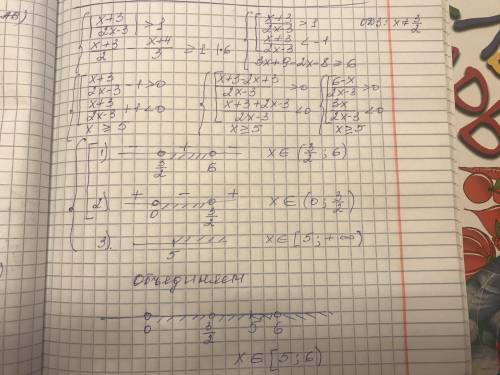 { |(x+3)/(2x-3)| > 1
{ (x+3)/2 - (x+4)/3 ≥ 1 | ·6
{ [ (x+3)/(2x-3) > 1
{ [ (x+3)/(2x-3) < -1
{ 3x+9-2x-8 ≥ 6
ОДЗ: x ≠ 3/2
{ [ (x+3)/(2x-3) - 1 > 0
{ [ (x+3)/(2x-3) + 1 < 0
{ x ≥ 5
{ [ (x+3-2x+3)/(2x-3) > 0
{ [ (x+3+2x-3)/(2x-3) < 0
{ x ≥ 5
{ [ (6-x)/(2x-3) > 0
{ [ 3x/(2x-3) < 0
{ x ≥ 5
1) - + - 3/2 6 x ∈ (3/2; 6)
2) + - + 0 3/2 x ∈ (0; 3/2)
3). 5 x ∈ [5; +∞)
Объединяем
0 3/2 5 6
x ∈ [5; 6)